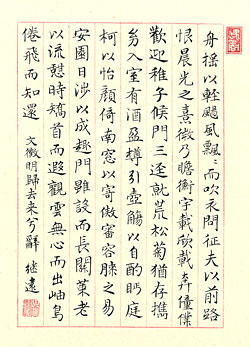 舟搖以輕颺風飄〻而吹衣問征夫以前路
恨晨光之熹微乃瞻衡宇載欣載奔僮僕
歡迎稚子候門三逕就荒松菊猶存攜
幼入室有酒盈樽引壺觴以自酌眄庭
柯以怡顏倚南窓以寄傲審容膝之易
安園日涉以成趣門雖設而長關策老
以流憩時矯首而遐觀雲無心而出岫鳥
倦飛而知還 文徵明歸去來兮辭 继遠